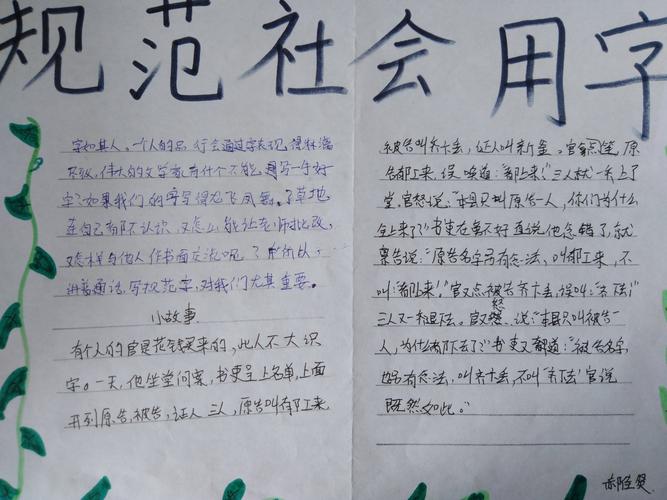 规范社会用字
字如其人。一个人的品行会通过字表现得淋漓
尽致,伟大的文学家有什个不能写一手好
字?如果我们的字写得龙飞凤舞。了草地
连自己都不认识,又怎么能让老师批改,
又怎样与他人作书面交流呢?所以,
讲普通话,写规范字,对我们尤其重要。
小故事
有个人的官是花钱买来的,此人不大识
字。一天,他坐堂问案,书吏呈上名单,上面
开列原告,被告,证人三人,原告叫郁工来
被告叫齐卞丢,证人叫新釜。官
原
告郁工来,误喊道:"都上来!"三人就一齐上了
堂,官想说:"本县只叫原告一人,你们为什么
全上来了?"书吏在里不好直说他念错了,就
禀告说:"原告名字另有念法,叫郁工来,不
叫都上来!"官又点被告齐卞丢,误叫:"齐下去!"
三人又一
官又怒,说:"本县只叫被告一
人,为什么都下去了?"书吏又
道:"被告名字
也另有念法,叫齐卞丢,不叫齐下去"官说
既然如此。"